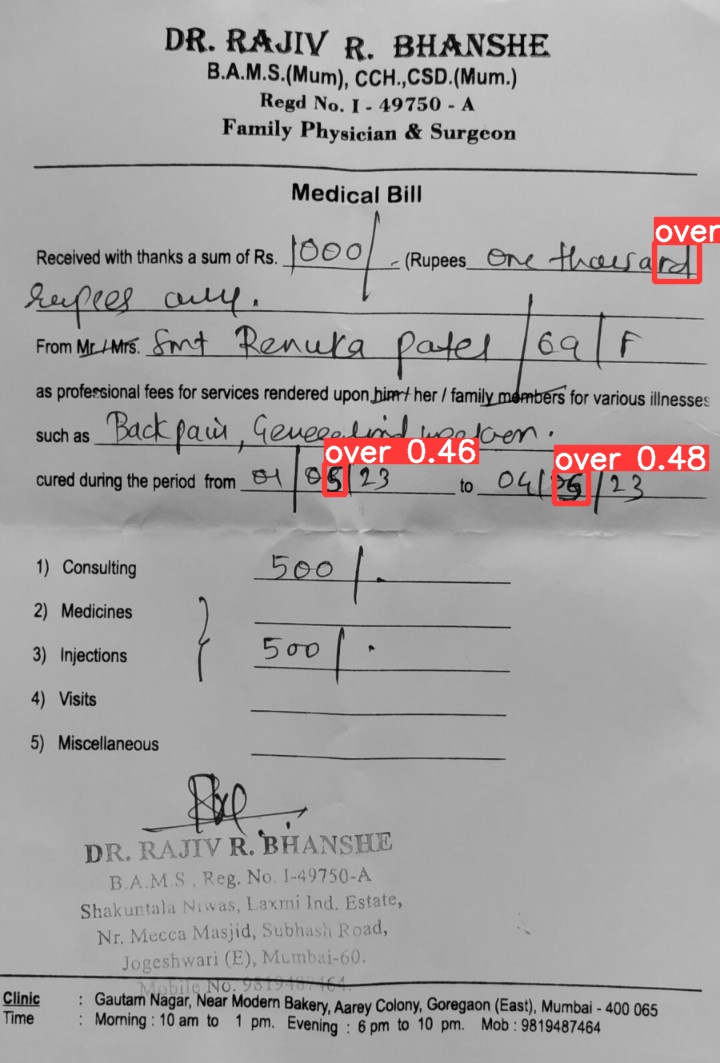 DR. RAJIV R. BHANSHE
B.A.M.S.(Mum), CCH.,CSD.(Mum.)
Regd No. I - 49750 - A
Family Physician & Surgeon
Medical Bill
over
Received with thanks a sum of Rs. 1000/- (Rupees one thousand
Rupees only.
From Mr./Mrs. Smt Renuka Patel / 69 / F
as professional fees for services rendered upon him / her / family members for various illnesses
such as Back pain,
over 0.46
over 0.48
cured during the period from 01/05/23 to 04/05/23
1) Consulting 500/-
2) Medicines
3) Injections 500/-
4) Visits
5) Miscellaneous
DR. RAJIV R. BHANSHE
B.A.M.S , Reg. No. I-49750-A
Shakuntala Niwas, Laxmi Ind. Estate,
Nr. Mecca Masjid, Subhash Road,
Jogeshwari (E), Mumbai-60.
Mobile No. 9819487464.
Clinic : Gautam Nagar, Near Modern Bakery, Aarey Colony, Goregaon (East), Mumbai - 400 065
Time : Morning : 10 am to 1 pm. Evening : 6 pm to 10 pm. Mob : 9819487464